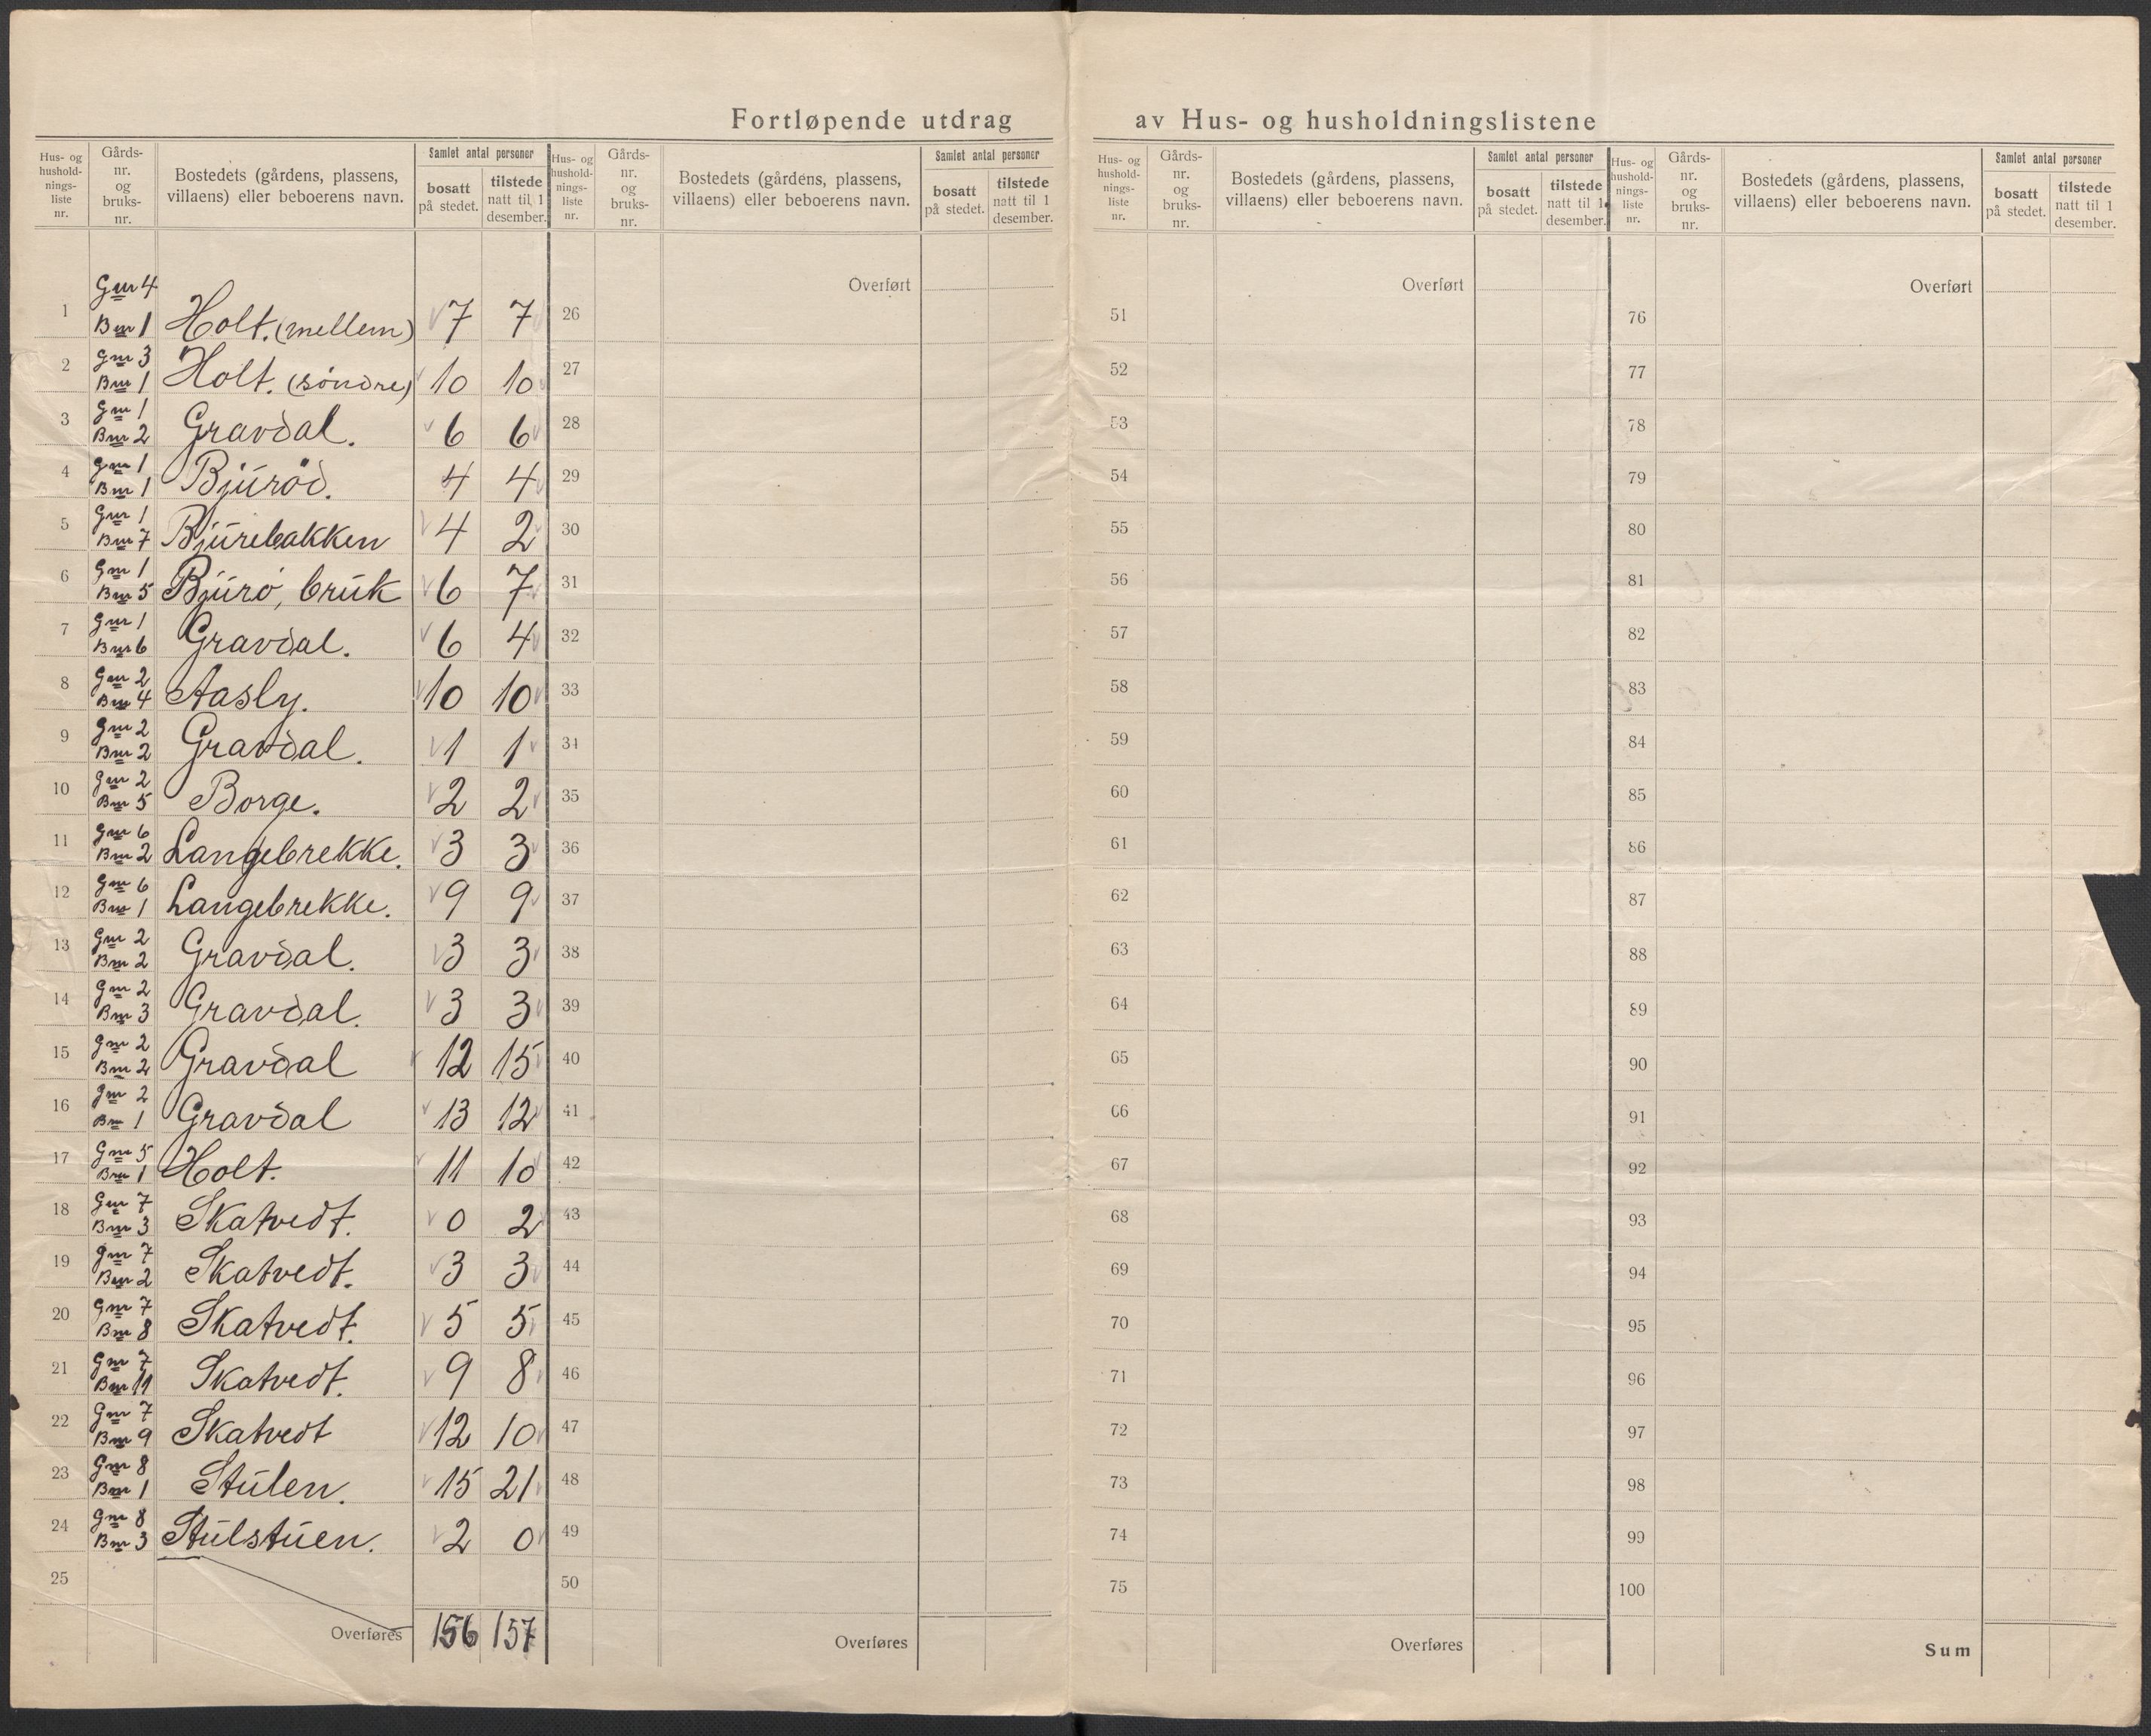 Fortløpende utdrag av Hus- og husholdningslistene
Hus- og hushold-nings-liste nr. Gårds-nr. og bruks-nr. Bostedets (gårdens, plassens, villaens) eller beboerens navn. Samlet antal personer bosatt på stedet. tilstede natt til 1 desember.
Hus- og hushold-nings-liste nr. Gårds-nr. og bruks-nr. Bostedets (gårdens, plassens, villaens) eller beboerens navn. Samlet antal personer bosatt på stedet. tilstede natt til 1 desember.
Hus- og hushold-nings-liste nr. Gårds-nr. og bruks-nr. Bostedets (gårdens, plassens, villaens) eller beboerens navn. Samlet antal personer bosatt på stedet. tilstede natt til 1 desember.
Hus- og hushold-nings-liste nr. Gårds-nr. og bruks-nr. Bostedets (gårdens, plassens, villaens) eller beboerens navn. Samlet antal personer bosatt på stedet. tilstede natt til 1 desember.
1 Gnr 4 Bnr 1 Holt. (mellem) 7 7
2 Gnr 3 Bnr 1 Holt. (søndre) 10 10
3 Gnr 1 Bnr 2 Gravdal. 6 6
4 Gnr 1 Bnr 1 Bjurød. 4 4
5 Gnr 1 Bnr 7 Bjurebakken 4 2
6 Gnr 1 Bnr 5 Bjurø, bruk 6 7
7 Gnr 1 Bnr 6 Gravdal. 6 4
8 Gnr 2 Bnr 4 Aasly. 10 10
9 Gnr 2 Bnr 2 Gravdal. 1 1
10 Gnr 2 Bnr 5 Borge. 2 2
11 Gnr 6 Bnr 2 Langebrekke. 3 3
12 Gnr 6 Bnr 1 Langebrekke. 9 9
13 Gnr 2 Bnr 2 Gravdal. 3 3
14 Gnr 2 Bnr 3 Gravdal. 3 3
15 Gnr 2 Bnr 2 Gravdal 12 15
16 Gnr 2 Bnr 1 Gravdal 13 12
17 Gnr 5 Bnr 1 Holt. 11 10
18 Gnr 7 Bnr 3 Skatvedt. 0 2
19 Gnr 7 Bnr 2 Skatvedt. 3 3
20 Gnr 7 Bnr 8 Skatvedt. 5 5
21 Gnr 7 Bnr 11 Skatvedt. 9 8
22 Gnr 7 Bnr 9 Skatvedt 12 10
23 Gnr 8 Bnr 1 Stulen. 15 21
24 Gnr 8 Bnr 3 Stulstuen. 2 0
25
Overføres 156 157
Overført
26
27
28
29
30
31
32
33
34
35
36
37
38
39
40
41
42
43
44
45
46
47
48
49
50
Overføres
Overført
51
52
53
54
55
56
57
58
59
60
61
62
63
64
65
66
67
68
69
70
71
72
73
74
75
Overføres
Overført
76
77
78
79
80
81
82
83
84
85
86
87
88
89
90
91
92
93
94
95
96
97
98
99
100
Sum